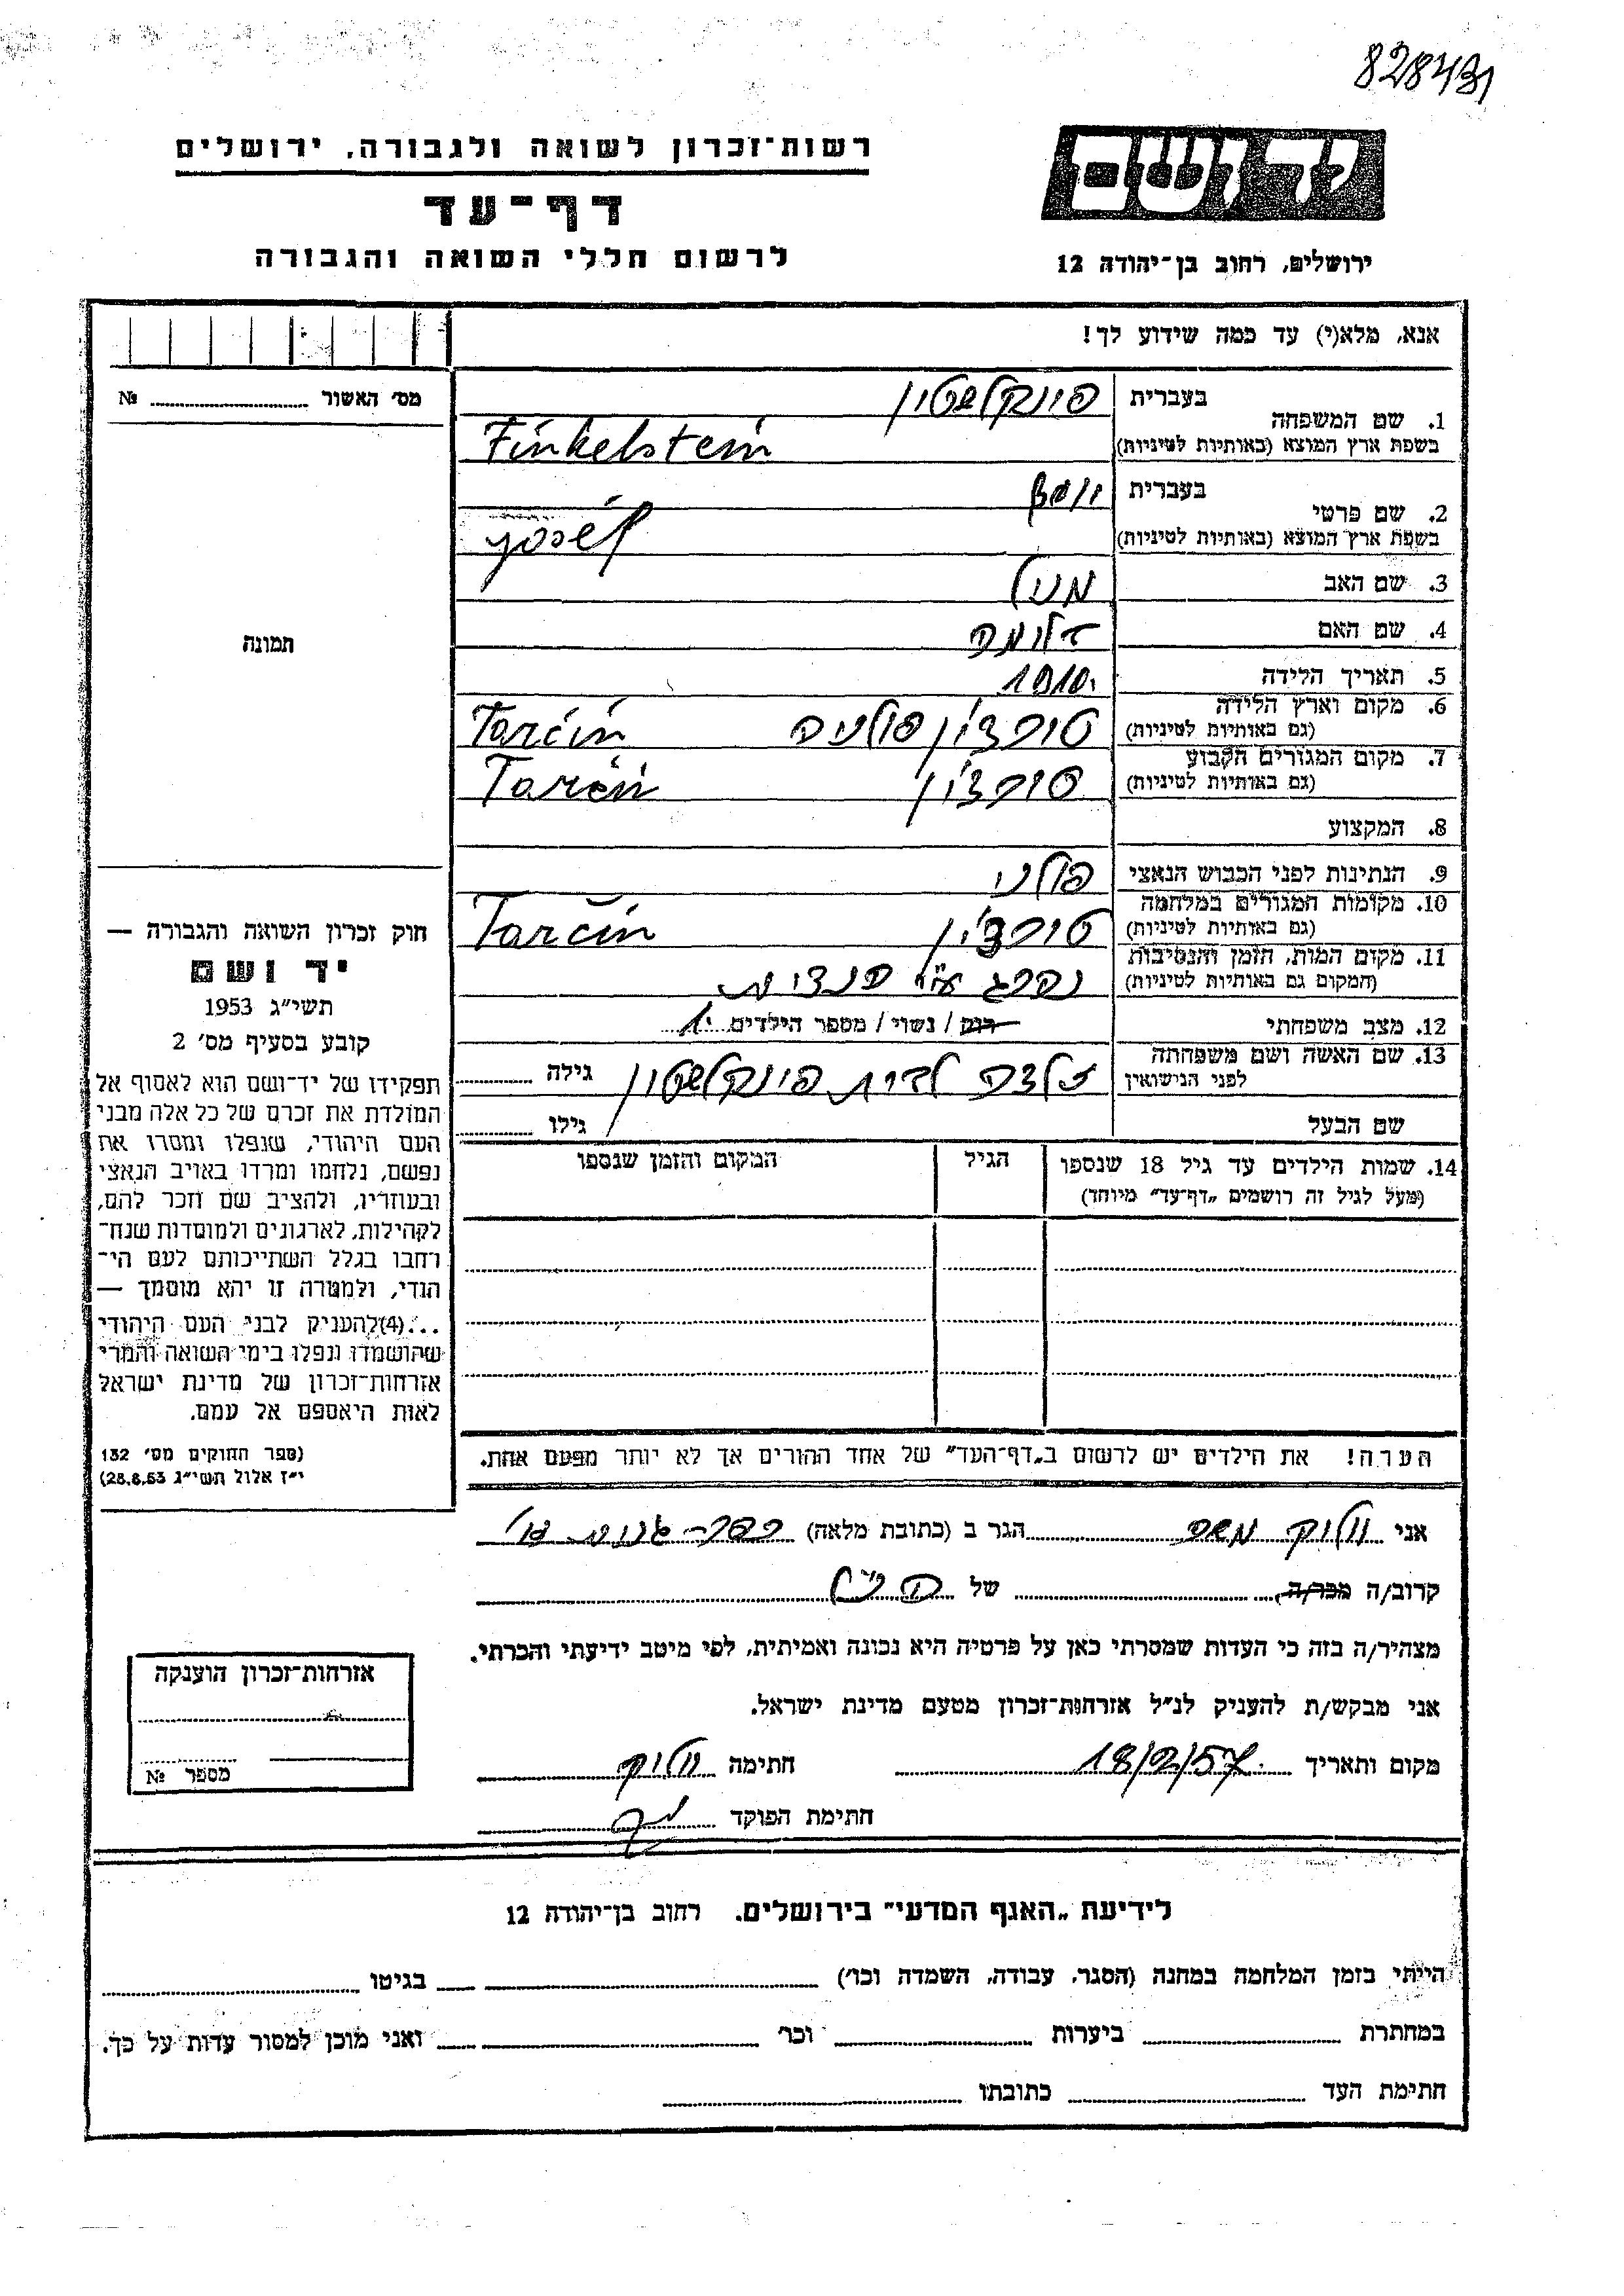 828431
יד ושם
ירושלים, רחוב בן־יהודה 12
רשות־זכרון לשואה ולגבורה, ירושלים
דף־עד
לרשום חללי השואה והגבורה
אנא, מלא(י) עד כמה שידוע לך!
מס' האשור № 
1. שם המשפחה
בעברית פינקלשטין
בשפת ארץ המוצא (באותיות לטיניות) Finkelstein
2. שם פרטי
בעברית יוסף
בשפת ארץ המוצא (באותיות לטיניות) Josef
3. שם האב
4. שם האם
5. תאריך הלידה 1910
6. מקום וארץ הלידה
(גם באותיות לטיניות) טורצ'ין פולניה Tarčin
7. מקום המגורים הקבוע
(גם באותיות לטיניות) טורצ'ין Tarčin
8. המקצוע
9. הנתינות לפני הכבוש הנאצי פולני
10. מקומות המגורים במלחמה
(גם באותיות לטיניות) טורצ'ין Tarčin
11. מקום המות, הזמן והנסיבות
(המקום גם באותיות לטיניות) נהרג ע"י
12. מצב משפחתי רווק / נשוי / מספר הילדים 1
13. שם האשה ושם משפחתה
לפני הנישואין זלדה לבית פינקלשטין גילה
שם הבעל גילו
14. שמות הילדים עד גיל 18 שנספו
(מעל לגיל זה רושמים „דף־עד" מיוחד)
הגיל
המקום והזמן שנספו
הערה! את הילדים יש לרשום ב„דף־העד" של אחד ההורים אך לא יותר מפעם אחת.
תמונה
חוק זכרון השואה והגבורה —
יד ושם
תשי"ג 1953
קובע בסעיף מס' 2
תפקידו של יד־ושם הוא לאסוף אל
המולדת את זכרם של כל אלה מבני
העם היהודי, שנפלו ומסרו את
נפשם, נלחמו ומרדו באויב הנאצי
ובעוזריו, ולהציב שם וזכר להם,
לקהילות, לארגונים ולמוסדות שנח־
רחבו בגלל השתייכותם לעם הי־
הודי, ולמטרה זו יהא מוסמך —
...(4)להעניק לבני העם היהודי
שהושמדו ונפלו בימי השואה והמרי
אזרחות־זכרון של מדינת ישראל
לאות היאספם אל עמם.
(ספר החוקים מס' 132
י"ז אלול תשי"ג 28.8.53)
אני וולוק משה הגר ב (כתובת מלאה)
קרוב/ה מכר/ה של
מצהיר/ה בזה כי העדות שמסרתי כאן על פרטיה היא נכונה ואמיתית, לפי מיטב ידיעתי והכרתי.
אני מבקש/ת להעניק לנ"ל אזרחות־זכרון מטעם מדינת ישראל.
מקום ותאריך 18/2/57 חתימה וולוק
חתימת הפוקד
אזרחות־זכרון הוענקה
מספר №
לידיעת „האגף המדעי" בירושלים. רחוב בן־יהודה 12
הייתי בזמן המלחמה במחנה (הסגר, עבודה, השמדה וכו') בגיטו
במחתרת ביערות וכו' ואני מוכן למסור עדות על כך.
חתימת העד כתובתו